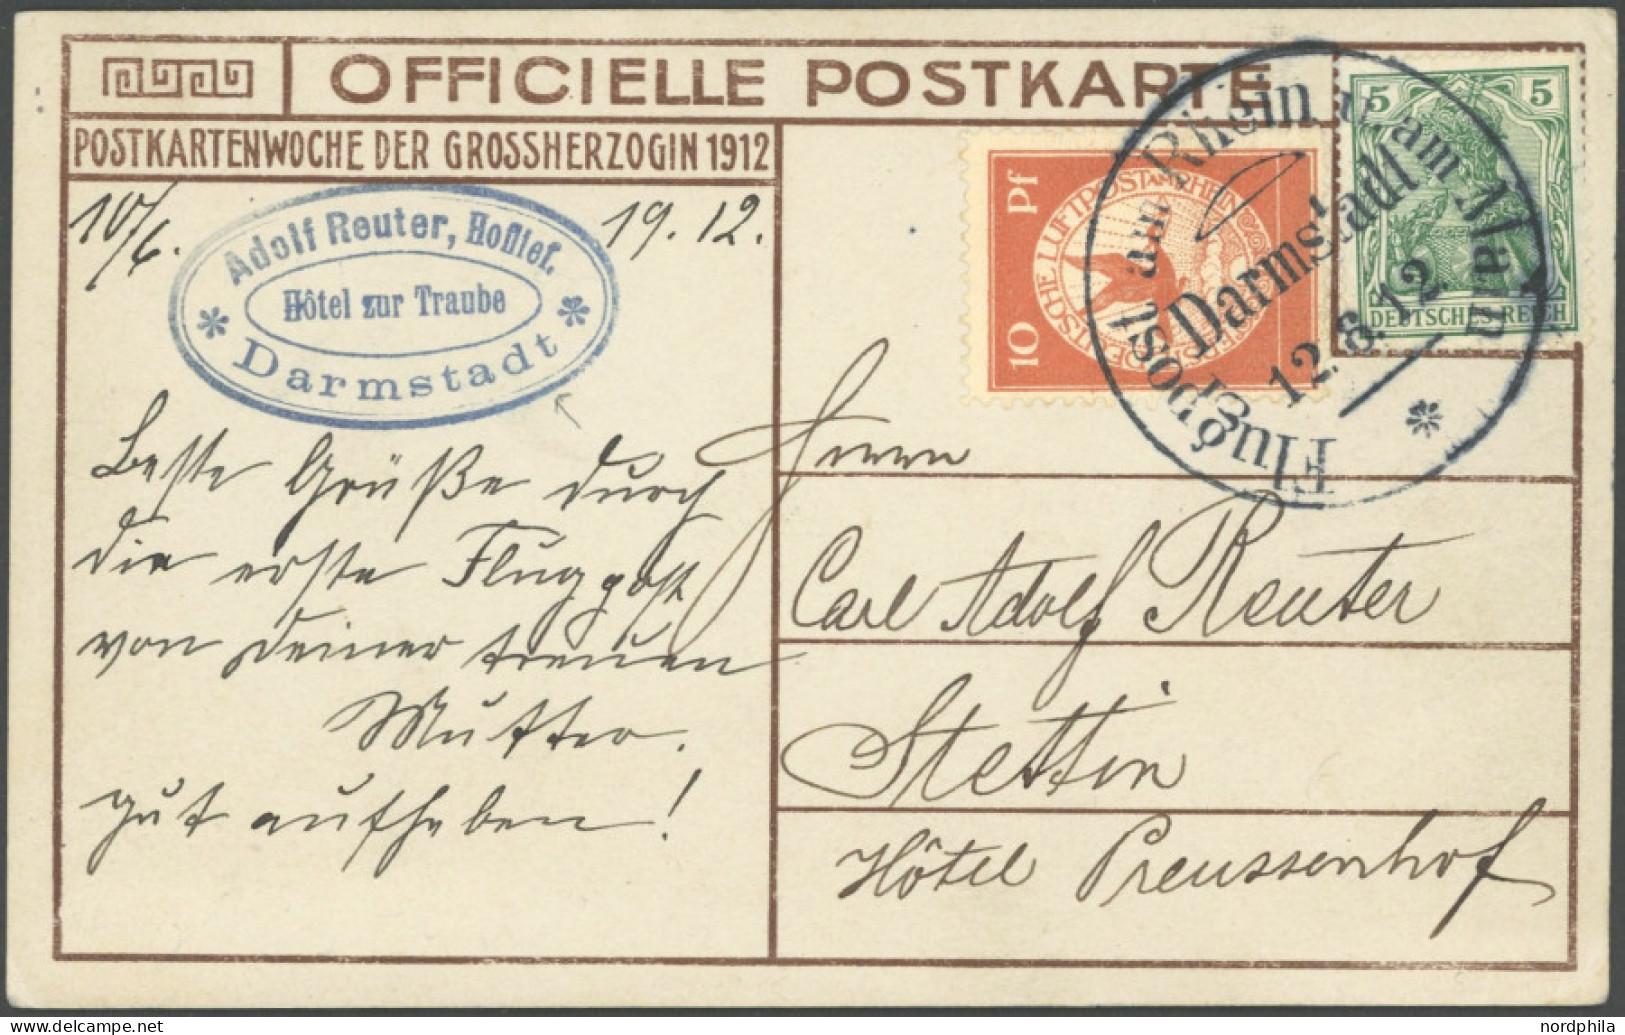 OFFICIELLE POSTKARTE
POSTKARTENWOCHE DER GROSSHERZOGIN 1912
10/6. 19.12.
Adolf Reuter, Hoflief.
Hôtel zur Traube
* Darmstadt *
Beste Grüße durch
die erste Flugpost
von Deiner treuen
Mutter.
gut aufheben!
10 Pf
DEUTSCHE LUFTPOST AM RHEIN
5 5
DEUTSCHES REICH
Flugpost am Rhein u. am Main
Darmstadt
12.6.12
*
Herrn
Carl Adolf Reuter
Stettin
Hôtel Preussenhof
nordphila
www.delcampe.net